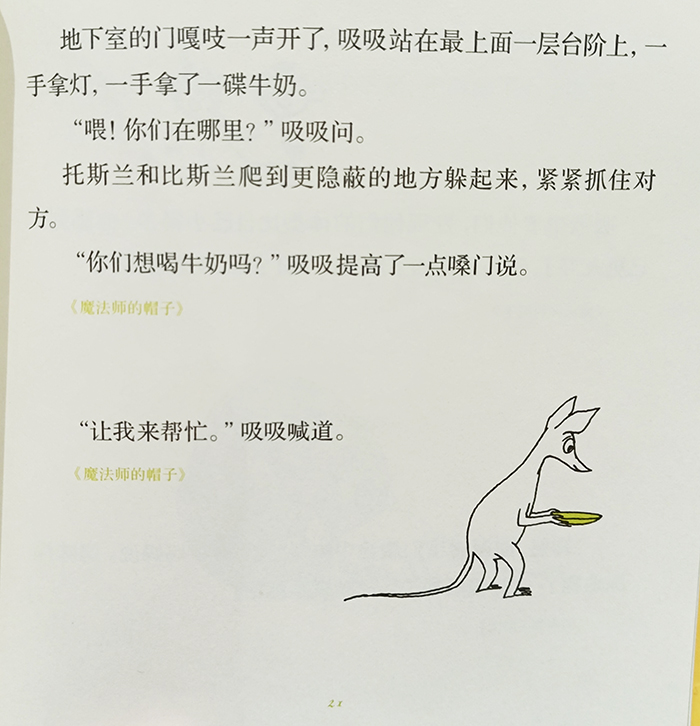 地下室的门嘎吱一声开了，吸吸站在最上面一层台阶上，一
手拿灯，一手拿了一碟牛奶。
“喂！你们在哪里？”吸吸问。
托斯兰和比斯兰爬到更隐蔽的地方躲起来，紧紧抓住对
方。
“你们想喝牛奶吗？”吸吸提高了一点嗓门说。
《魔法师的帽子》
“让我来帮忙。”吸吸喊道。
《魔法师的帽子》
21